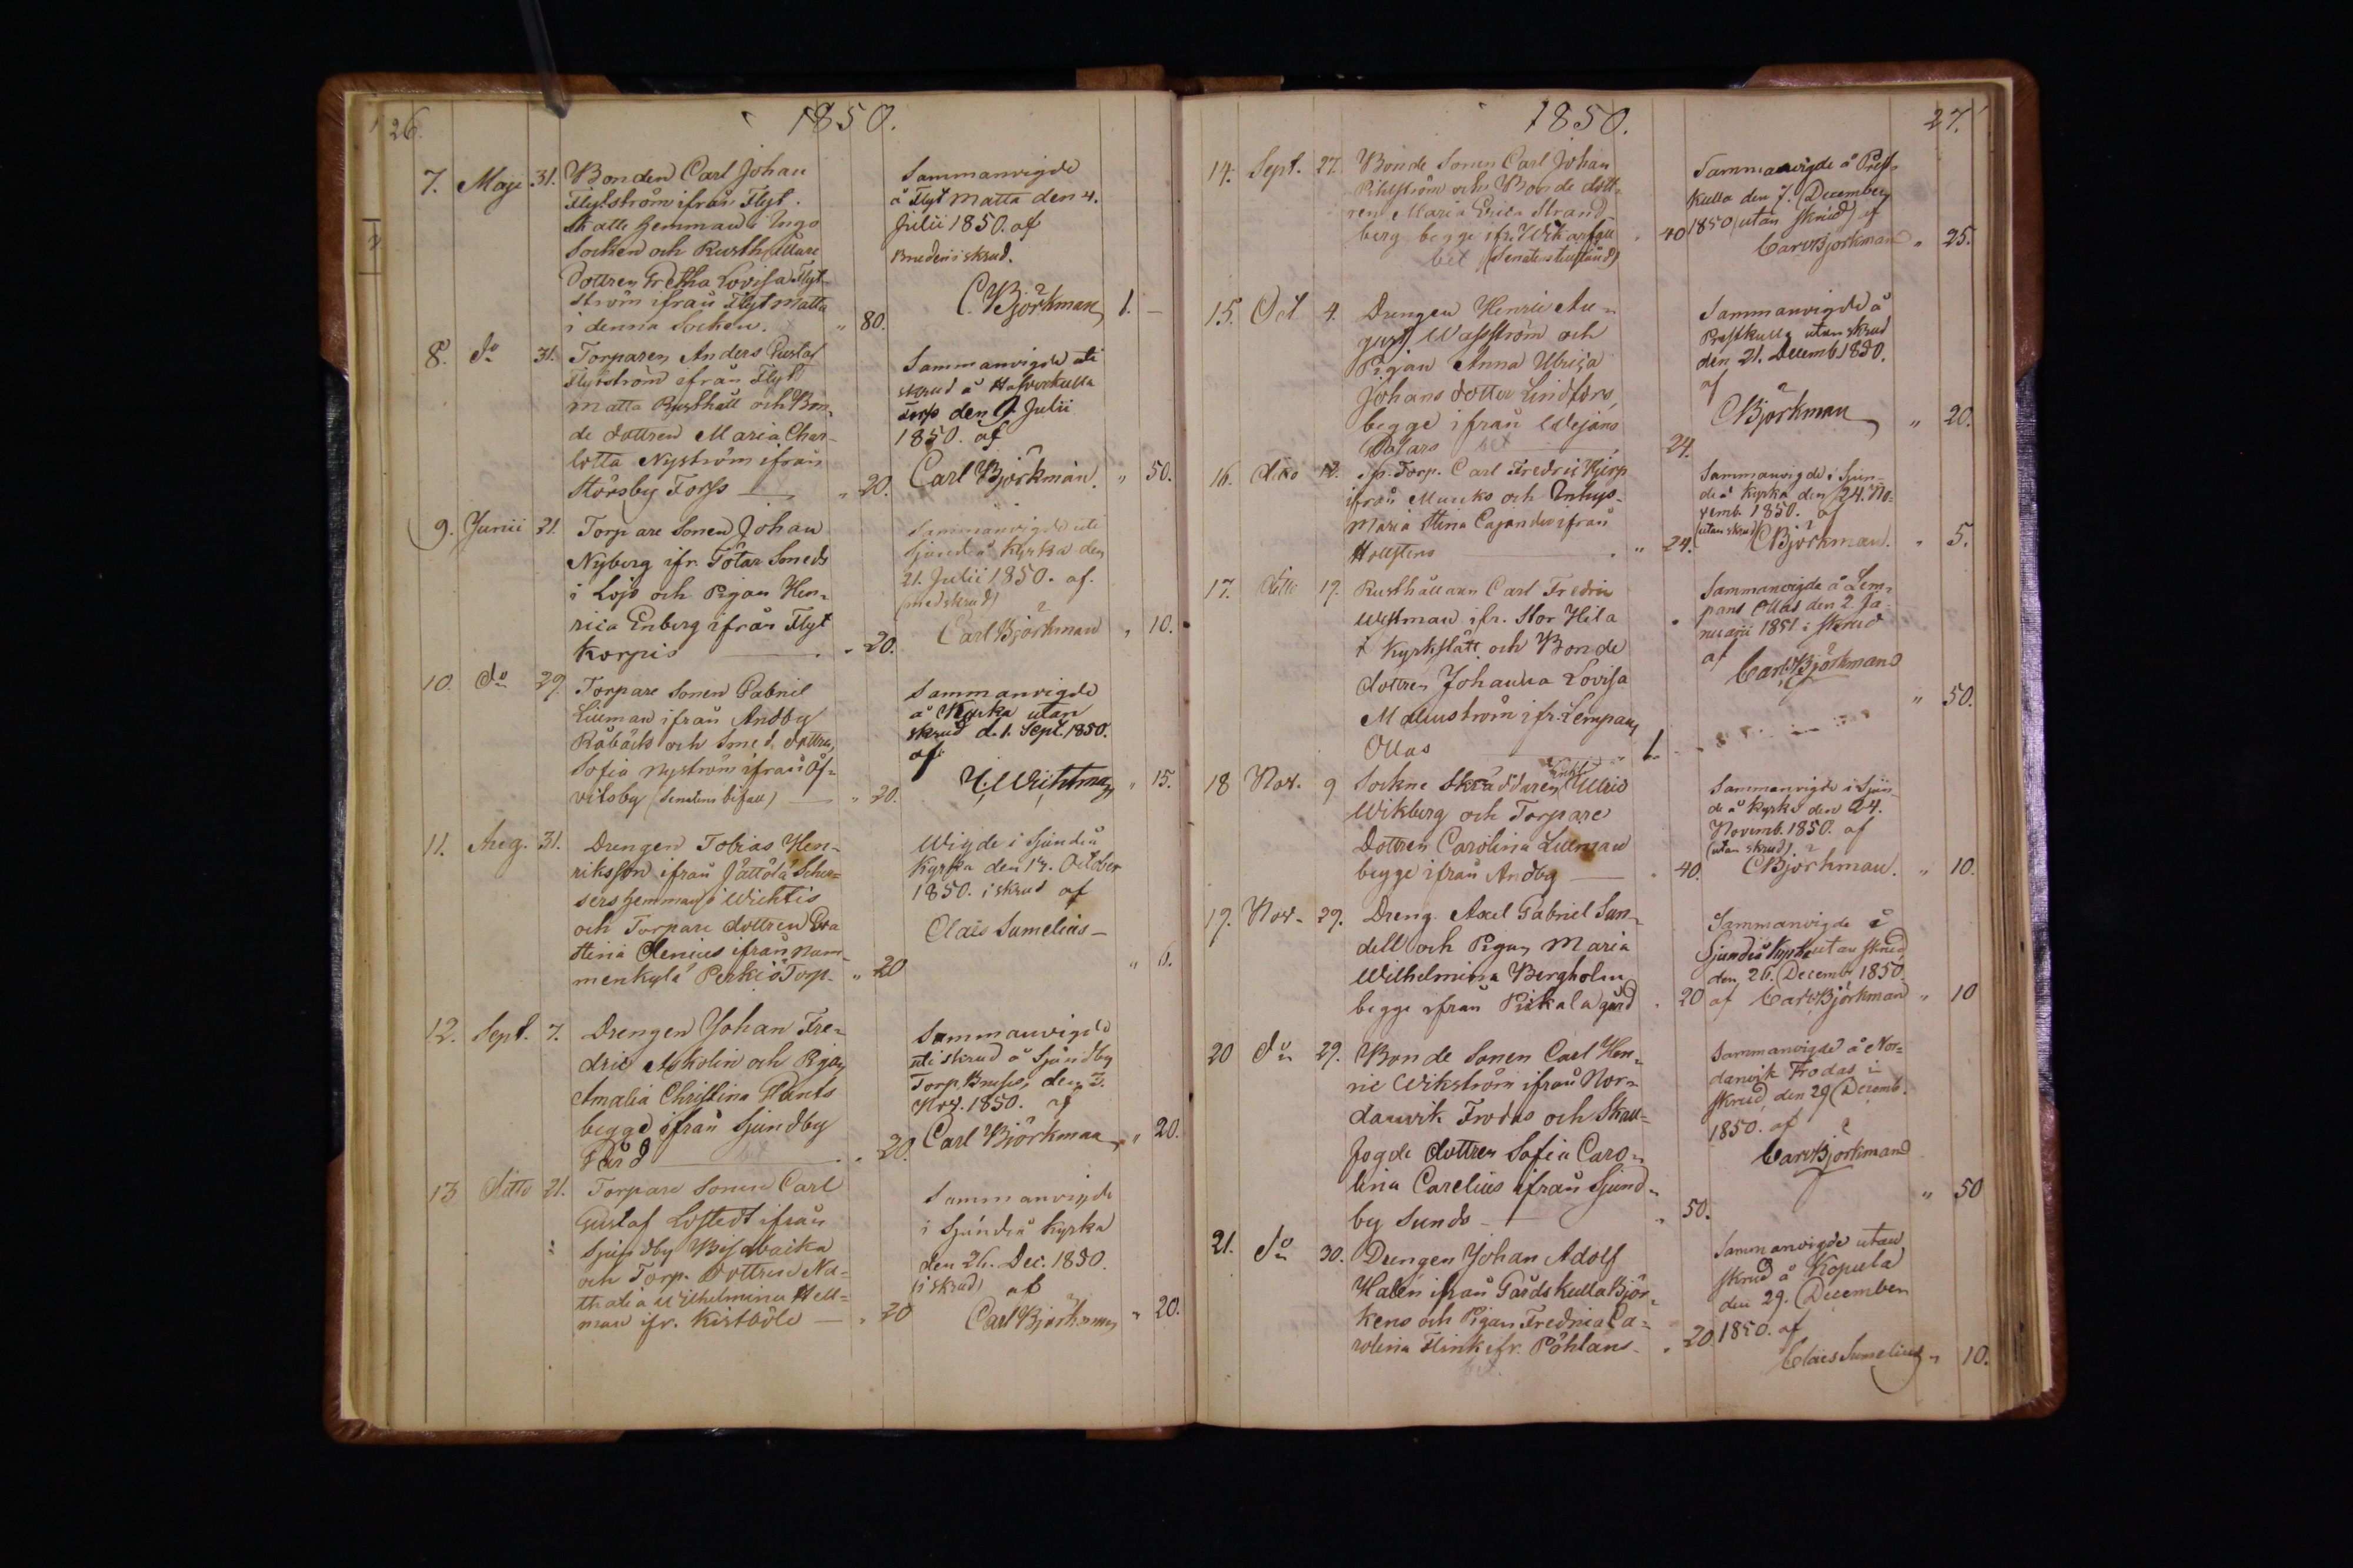 26.
1850.
7. Maji 31. Bonden Carl Johan
Flytström ifrån Flyt.
Skatte hemman i Ingo
Socken och Rusthållare
dottren Gretha Lovisa Flyt-
ström ifrån Flyt matta
i denna Socken. " 80.
Sammanvigde
å Flyt matta den 4.
Julii 1850. af
Bruden i skrud.
C. Björkman 1. —
8. do 31. Torparen Anders Gustaf
Flytström ifrån Flyt
matta Rusthåll och Bon-
de dottren Maria Char-
lotta Nyström ifrån
Störsby Forss — " 20.
Sammanvigde uti
skrud å
den Julii
1850. af
Carl Björkman. " 50.
9. Junii 21. Torpare Sonen Johan
Nyberg ifr. Götar Smeds
i Lojo och Pigan Hen-
rica Enberg ifrån Flyt
Korpis — " 20.
Sammanvigde uti
Sjundeå Kyrka den
21. Julii 1850. af.
(med skrud)
Carl Björkman " 10.
10. do 29. Torpare Sonen Gabriel
Lileman ifrån Andby
Råbäck och Smed dottren
Sofia Nyström ifrån Öf-
vitsby (Senatens bifall) — " 20.
Sammanvigde
å Kyrka utan
skrud d. 1. Sept. 1850.
af
Wichtman " 15.
11. Aug. 31. Drengen Tobias Hen-
riksson ifrån Jättölä
sers hemman i Wichtis
och Torpare dottren Eva
Stina Clenius ifrån Num-
menkylä Perkiö Torp. " 20
Wigde i Sjundeå
Kyrka den 14. October
1850. i skrud af
Claës Sumelius —
" 6.
12. Sept. 7. Drengen Johan Fre-
dric Askolin och Pigan
Amalia Christina
begge ifrån Sjundby
Gård — " 20.
Sammanvigde
uti skrud å Sjundby
Torp den 3.
Nov. 1850. af
Carl Björkman " 20.
13 ditto 21. Torpare Sonen Carl
Gustaf Lostedt ifrån
Sjundby
och Torp. dottren Na-
thalia Wilhelmina Hell-
man ifr. Kistböle — " 20
Sammanvigde
i Sjundeå Kyrka
den 26. Dec. 1850.
(i skrud) af
Carl Björkman " 20.
1850.
27.
14. Sept. 27. Bonde Sonen Carl Johan
Pihlström och Bonde dott-
ren Maria Erica Strand-
berg begge ifr.
bet " 40
Sammanvigde å Prest-
kulla den 7. December
1850 (utan skrud) af
Carl Björkman " 25.
15. Oct 4. Drengen Henric Au-
gust Wasström och
Pigan Anna Ulrica
Johans dotter Lindfors,
begge ifrån Wejans
Dalars bet 24.
Sammanvigde å
Prestkulla utan skrud
den 21. Decemb. 1850.
af
C Björkman " 20.
16. dito 12. Sp. Torp. Carl Fredric Hjerp
ifrån Munks och Inhys-
Maria Stina Cajander ifrån
Hollstens " 24.
Sammanvigde i Sjun-
deå Kyrka den 24. No-
vemb. 1850. af
(utan skrud) C Björkman. " 5.
17. ditto 19. Rusthållaren Carl Fredric
Wekman ifr. Stor Hila
i Kyrkslätt och Bonde
dottren Johanna Lovisa
Malmström ifr. Lempans
Ollas " 1.
Sammanvigde å Lem-
pans Ollas den 2. Ja-
nuarii 1851 i skrud
af Carl Björkman
" 50.
18 Nov. 9 Sockne Skräddaren Ulric
Wikberg och Torpare
Dottren Carolina Lilleman
begge ifrån Andby — " 40.
Sammanvigde i Sjun-
deå Kyrka den 24.
Novemb. 1850. af
(utan skrud)
C Björkman. " 10.
19. Nov. 29. Dreng. Axel Gabriel Sun-
dell och Pigan Maria
Wilhelmina Bergholm
begge ifrån Pikala gård " 20
Sammanvigde i
Sjundeå Kyrka utan skrud
den 26. Decemb 1850.
af Carl Björkman " 10
20 do 29. Bonde Sonen Carl Hen-
ric Wikström ifrån Nor-
danvik Frodas och Skall-
fogde dottren Sofia Caro-
lina Carelius ifrån Sjund-
by Sunds — " 50.
Sammanvigde å Nor-
danvik Frodas i
skrud, den 29 Decemb.
1850. af
Carl Björkman
" 50
21. do 30. Drengen Johan Adolf
Halén ifrån Gårdskulla Björ-
kens och Pigan Fredrica Ca-
rolina Flink ifr. Pöhlans. " 20
bet.
Sammanvigde utan
skrud å Kopula
den 29. December
1850. af
Claës Sumelius " 10.